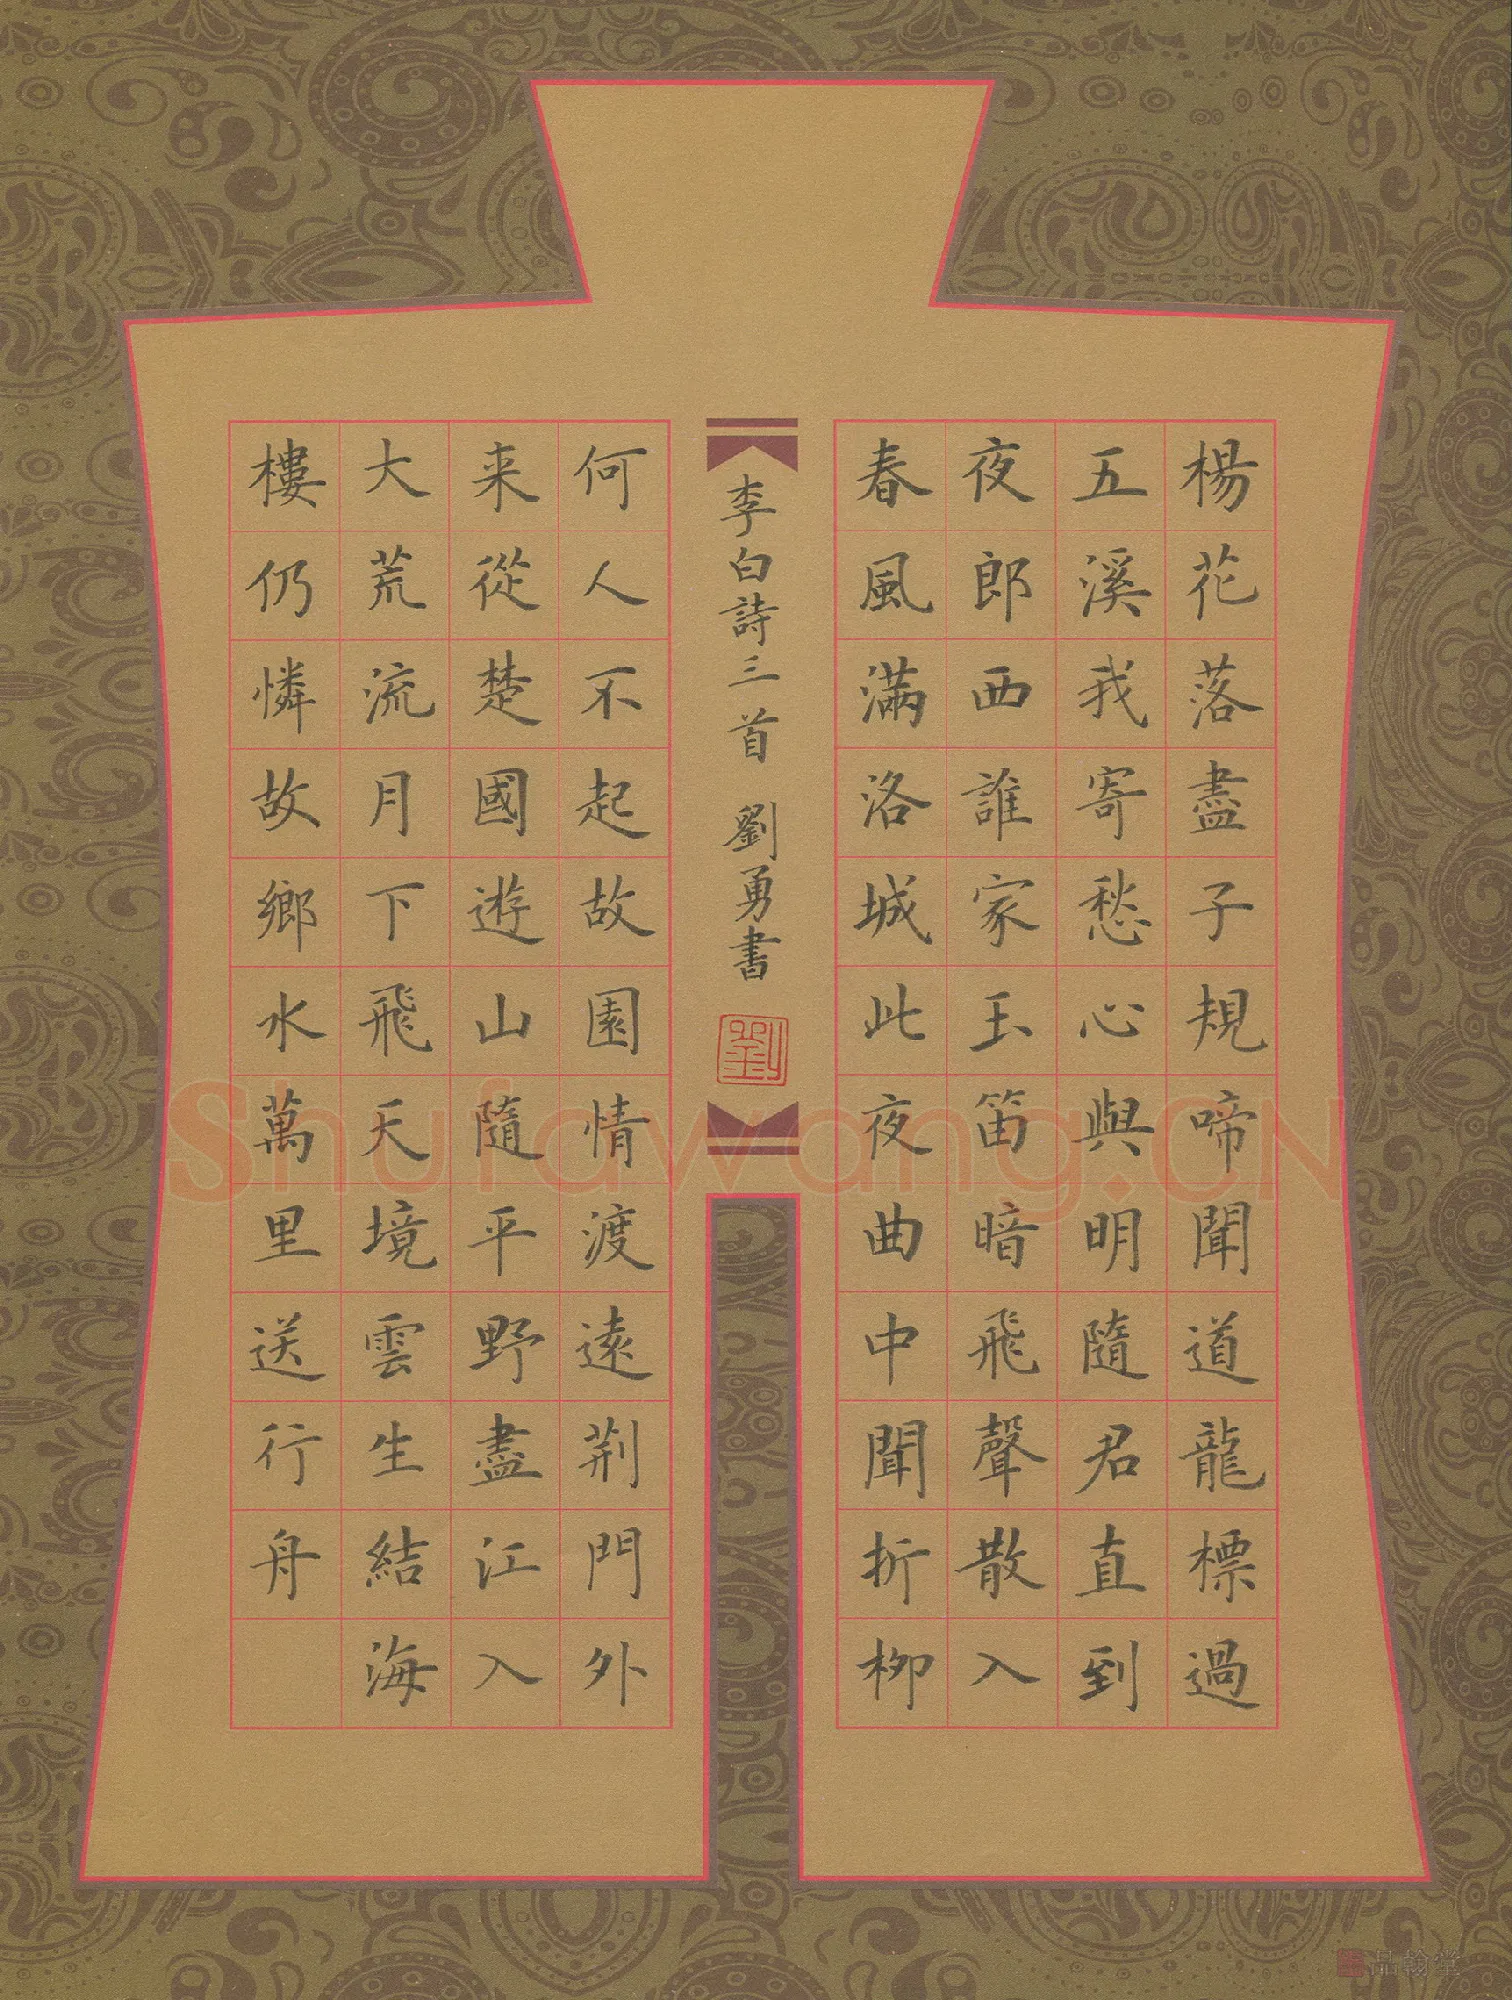 楊花落盡子規啼聞道龍標過
五溪我寄愁心與明隨君直到
夜郎西誰家玉笛暗飛聲散入
春風滿洛城此夜曲中聞折柳
李白詩三首 劉勇書
劉
何人不起故園情渡遠荆門外
来從楚國遊山隨平野盡江入
大荒流月下飛天境雲生結海
樓仍憐故鄉水萬里送行舟
Shufawang.CN
品翰堂